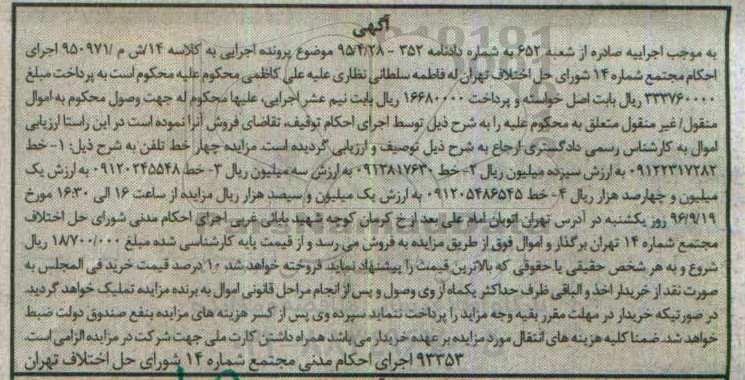 آگهی
به موجب اجراییه صادره از شعبه ۶۵۲ به شماره دادنامه ۳۵۲ - ۹۵/۴/۲۸ موضوع پرونده اجرایی به کلاسه ۱۴/ش م /۹۵۰۹۷۱ اجرای
احکام مجتمع شماره ۱۴ شورای حل اختلاف تهران له فاطمه سلطانی نظاری علیه علی کاظمی محکوم علیه محکوم است به پرداخت مبلغ
۳۳۳۷۶۰۰۰۰ ریال بابت اصل خواسته و پرداخت ۱۶۶۸۰۰۰۰ ریال بابت نیم عشر اجرایی، علیها محکوم له جهت وصول محکوم به اموال
منقول/ غیر منقول متعلق به محکوم علیه را به شرح ذیل توسط اجرای احکام توقیف، تقاضای فروش آنرا نموده است در این راستا ارزیابی
اموال به کارشناس رسمی دادگستری ارجاع به شرح ذیل توصیف و ارزیابی گردیده است. مزایده چهار خط تلفن به شرح ذیل: ۱- خط
۰۹۱۲۲۳۱۷۲۸۲ به ارزش سیزده میلیون ریال ۲- خط ۰۹۱۲۳۸۱۷۶۳۰ به ارزش سه میلیون ریال ۳- خط ۰۹۱۲۰۲۴۵۵۴۸ به ارزش یک
میلیون و چهارصد هزار ریال ۴- خط ۰۹۱۲۰۵۴۸۶۵۴۵ به ارزش یک میلیون و سیصد هزار ریال مزایده از ساعت ۱۶ الی ۱۶:۳۰ مورخ
۹۶/۹/۱۹ روز یکشنبه در آدرس تهران اتوبان امام علی بعد از خ کرمان کوچه شهید بابائی غربی اجرای احکام مدنی شورای حل اختلاف
مجتمع شماره ۱۴ تهران برگذار و اموال فوق از طریق مزایده به فروش می رسد و از قیمت پایه کارشناسی شده مبلغ ۱۸۷۰۰/۰۰۰ ریال
شروع و به هر شخص حقیقی یا حقوقی که بالاترین قیمت را پیشنهاد نماید فروخته خواهد شد ۱۰ درصد قیمت خرید فی المجلس به
صورت نقد از خریدار اخذ و الباقی ظرف حداکثر یکماه از وی وصول و پس از انجام مراحل قانونی اموال به برنده مزایده تملیک خواهد گردید.
در صورتیکه خریدار در مهلت مقرر بقیه وجه مزاید را پرداخت ننماید سپرده وی پس از کسر هزینه های مزایده بنفع صندوق دولت ضبط
خواهد شد. ضمنا کلیه هزینه های انتقال مورد مزایده بر عهده خریدار می باشد همراه داشتن کارت ملی جهت شرکت در مزایده الزامی است.
۹۳۳۵۳ اجرای احکام مدنی مجتمع شماره ۱۴ شورای حل اختلاف تهران